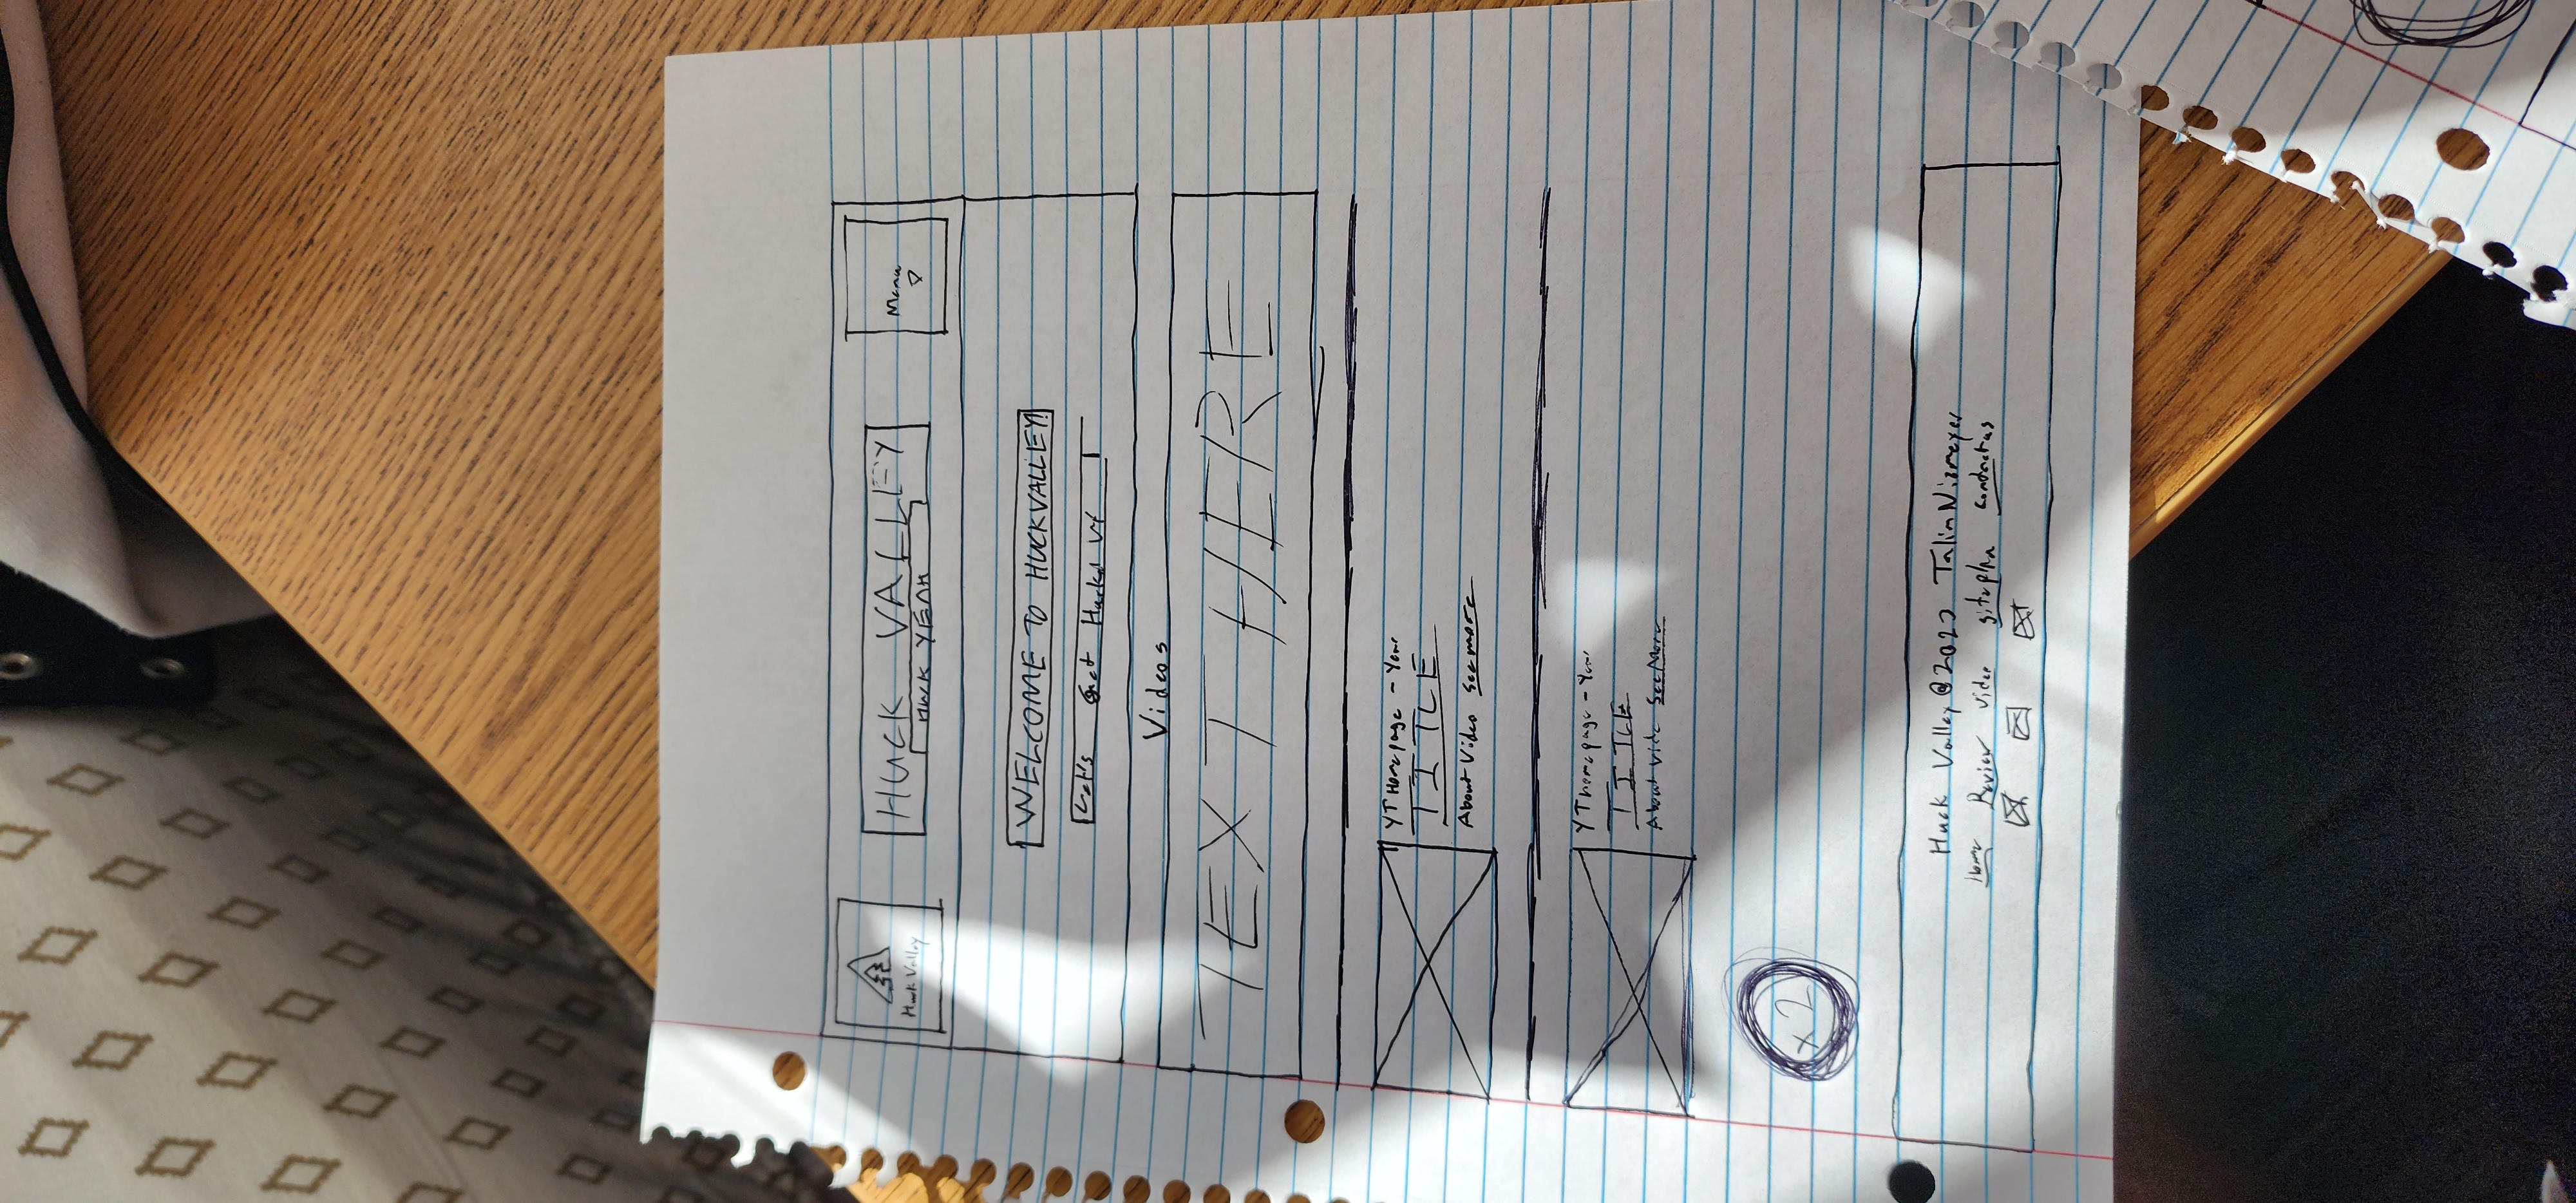 Huck Valley
HUCK VALLEY
HWK YEAH
Menu
WELCOME TO HUCKVALLEY!
Let's Get Huckd
Videos
TEXT HERE
YT Homepage - Year
TITLE
About Video See more
YT homepage - Year
TITLE
About Vide See More
x2
Huck Valley @ Talim
Home Review Video contact us